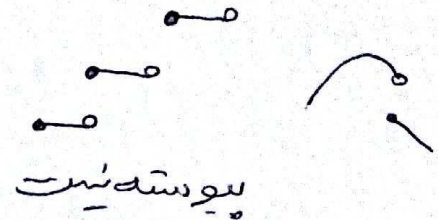 پیوسته نیست